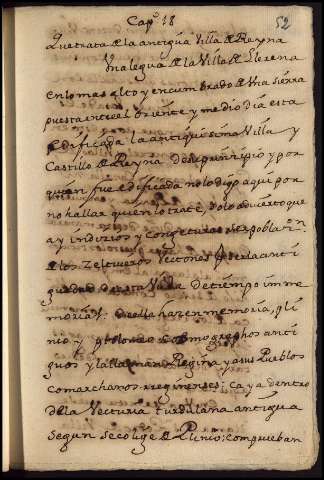 Capº. 18
52
Que trata de la antigua Villa de Reyna
Una legua de la Villa de Llerena
en lo mas alto y encumbrado de una sierra
puesta entre el oriente y medio dia esta
edificada la antiquissima Villa y
Castillo de Reyna de su principio y por
quien fue edificada no lo digo aqui por
no hallar quien lo trate, solo advierto que
ay indicios y congeturas ser poblaz.on
de los Zeltiveros Vectones por la anti
guedad de esta Villa de tiempo inme
morial: de ella hazen memoria, pli
nio y ptolomeo cosmographos anti
guos y la llaman Regina y a sus Pueblos
comarchanos reginenses: caya dentro
de la Vecturia turdulana antigua
segun se colige de Plinio; comprueban